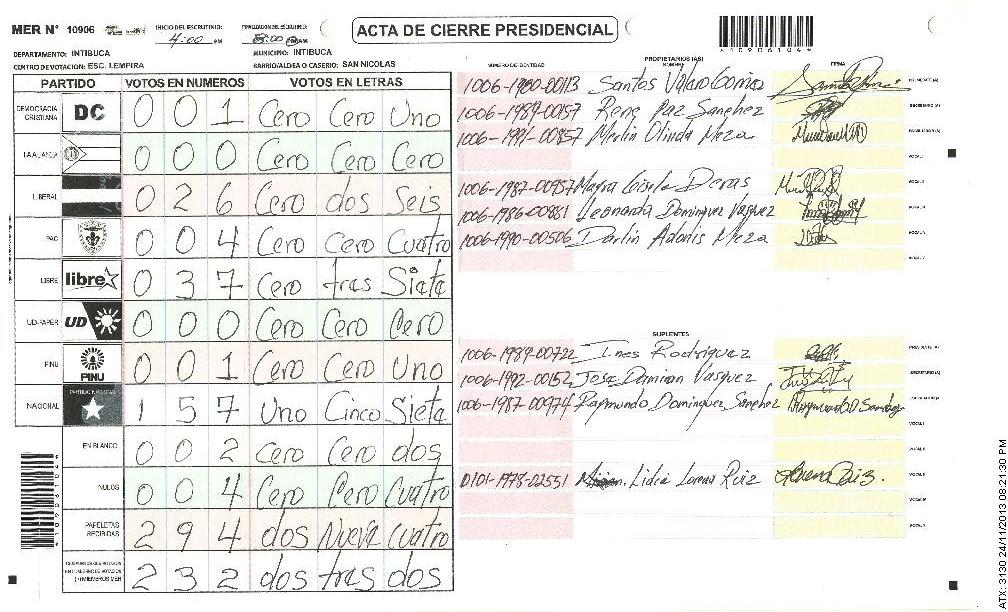 MER N° 10906
INICIO DEL ESCRUTINIO: 4:00 PM
FINALIZACION DEL ESCRUTINIO: 8:00 PM
ACTA DE CIERRE PRESIDENCIAL
DEPARTAMENTO: INTIBUCA
MUNICIPIO: INTIBUCA
CENTRO DE VOTACION: ESC. LEMPIRA
BARRIO/ALDEA O CASERIO: SAN NICOLAS
PARTIDO VOTOS EN NUMEROS VOTOS EN LETRAS
DEMOCRACIA CRISTIANA DC 0 0 1 Cero Cero Uno
LA ALIANZA 0 0 0 Cero Cero Cero
LIBERAL 0 2 6 Cero dos Seis
PAC 0 0 4 Cero Cero Cuatro
LIBRE libre 0 3 7 Cero tres Siete
UD-FAPER UD 0 0 0 Cero Cero Cero
PINU PINU 0 0 1 Cero Cero Uno
NACIONAL PARTIDO NACIONAL 1 5 7 Uno Cinco Siete
EN BLANCO 0 0 2 Cero Cero dos
NULOS 0 0 4 Cero Cero Cuatro
PAPELETAS RECIBIDAS 2 9 4 dos Nueve Cuatro
2 3 2 dos tres dos
PROPIETARIOS (AS)
NUMERO DE IDENTIDAD NOMBRE FIRMA
1006-1980-00113 Santos
1006-1989-00157 Rene Paz Sanchez
1006-1991-00857 Merlin Olinda Meza
1006-1987-00957 Mayra Gisela Deras
1006-1986-00881 Leonarda Dominguez Vasquez
1006-1990-00506 Darlin Adonis Meza
SUPLENTES
1006-1989-00722 Ines Rodriguez
1006-1992-00152 Jose Damian Vasquez
1006-1987-00974 Raymundo Dominguez Sanchez
0101-1978-02551 Lidia Lorena Ruiz
*10906104*
ATX: 3130 24/11/2013 08:21:30 PM